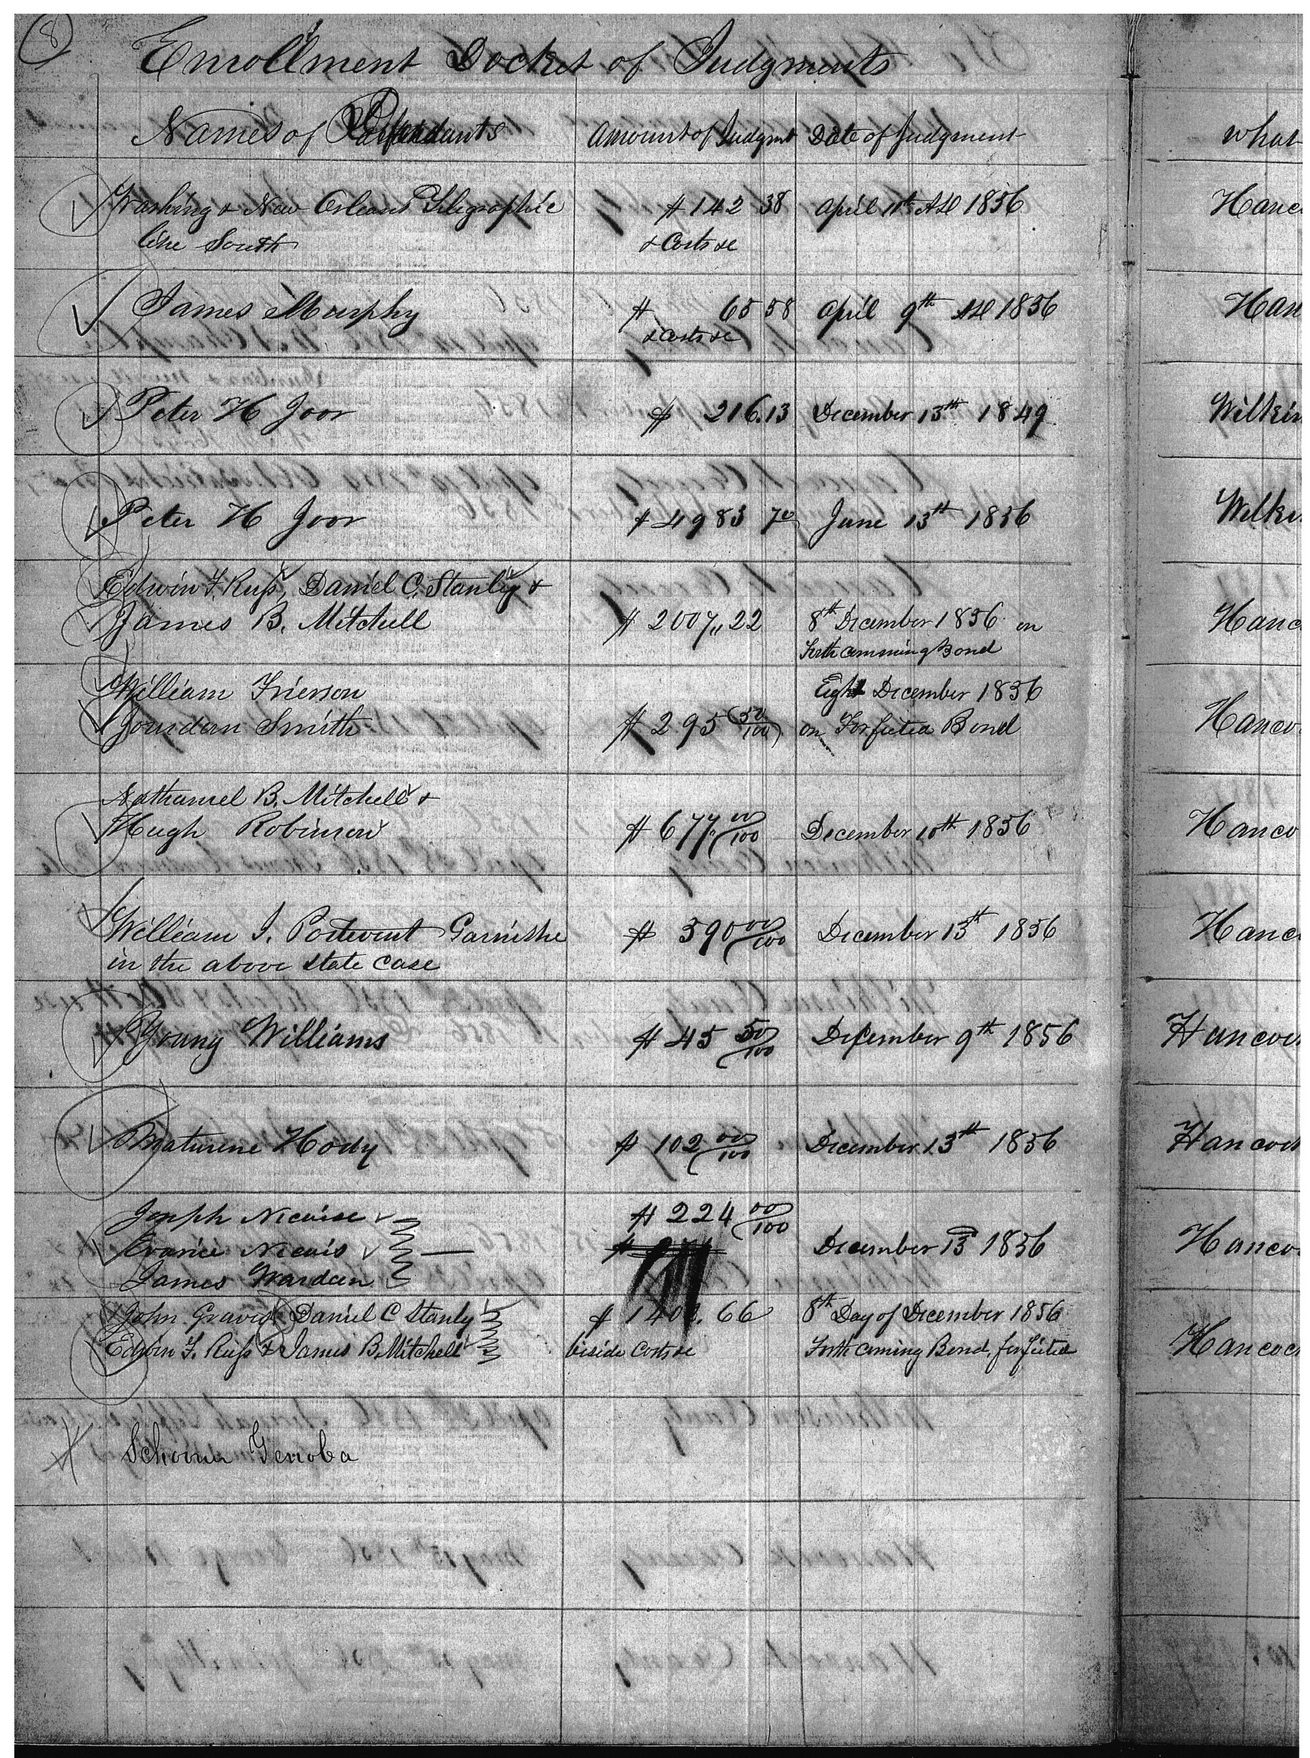 8
Enrollment Docket of Judgments
Names of Defendants Amount of Judgmt Date of Judgment what
Washing & New Orleans Telegraphic $142 38 April 11th AD 1856 Hanc
line South & Costs &c
James Murphy $ 65 58 April 9th AD 1856 Han
& Costs &c
Peter H Joor $ 216.13 December 13th 1849 Wilkin
Peter H Joor $ 4983 70 June 13th 1856 Wilki
Edwin F. Russ, Daniel C. Stanley &
James B. Mitchell $ 2007,,22 8th December 1856 on Hanc
Forth Comming Bond
William Frierson Eight December 1856
Jourdan Smith $ 295 50/100 on Forfieted Bond Hanco
Nathaniel B. Mitchell &
Hugh Robinson $ 677. 00/100 December 10th 1856 Hanco
William J. Poitevent Garnishe $ 390 00/100 December 13th 1856 Hanc
in the above State Case
Young Williams $ 45 50/100 December 9th 1856 Hancoc
Maturine Hody $ 102 00/100 December 13th 1856 Hancock
Joseph Nicaise $ 224 00/100
Nicais December 13 1856 Hancoc
James Wardan
John Daniel C Stanly $ 1402.66 8th Day of December 1856
Edwin F. Russ & James B. Mitchell beside Costs &c Forth Coming Bond, forfieted Hancoc
Genoba